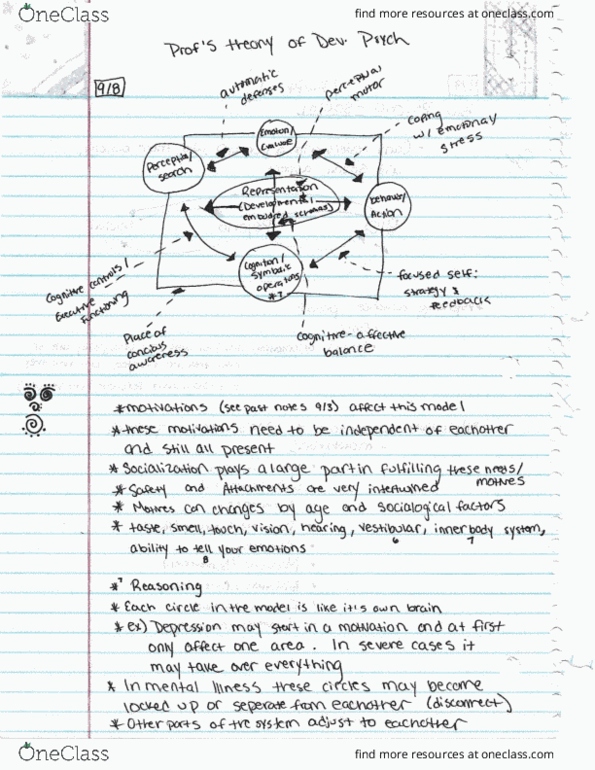 OneClass
find more resources at oneclass.com
Prof's theory of Dev. Psych
9/8
automatic
defenses
perceptual
motor
coping
w/ emotional
stress
Emotion/
Evaluate
Perceptual/
search
Representation
(Developmental
embodied schemas)
behavior/
Action
Cognition/
symbolic
operations
*?
Cognitive controls/
Executive
functioning
focused self:
strategy &
feedback
Place of
concious
awareness
cognitive-affective
balance
* motivations (see past notes 9/3) affect this model
* these motivations need to be independent of eachother
and still all present
* Socialization plays a large part in fulfilling these needs/
motives
* Safety and Attachments are very intertwined
* Motives can changes by age and sociological factors
* taste, smell, touch, vision, hearing, vestibular, inner body system,
6 7
ability to tell your emotions
8
*? Reasoning
* Each circle in the model is like it's own brain
* ex) Depression may start in a motivation and at first
only affect one area. In severe cases it
may take over everything
* In mental illness these circles may become
locked up or seperate from eachother (disconnect)
* Other parts of the system adjust to eachother
OneClass
find more resources at oneclass.com